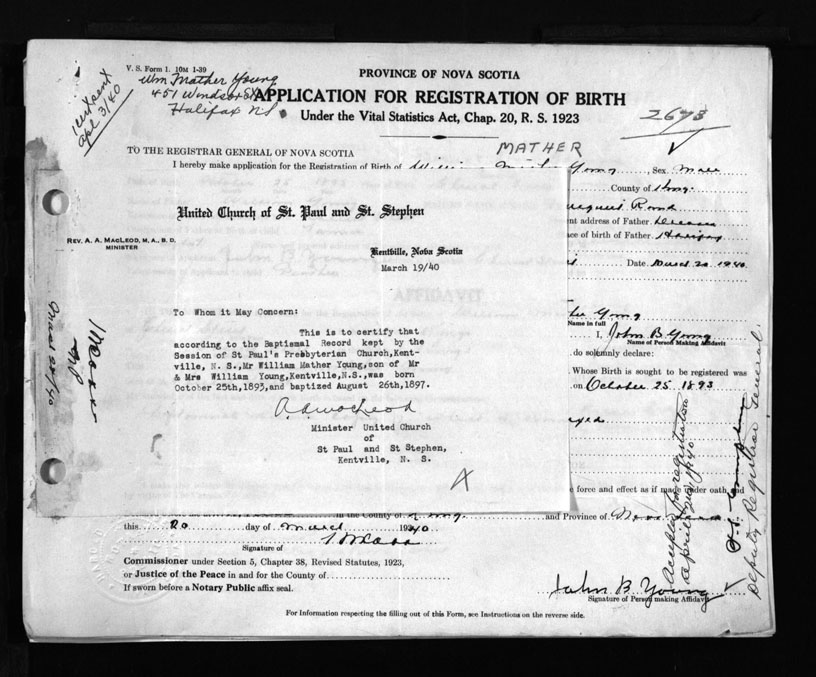 V. S. Form 1. 10M 1-39
Wm Mather Young
451 Windsor St
Halifax NS.
Apl 3/40
PROVINCE OF NOVA SCOTIA
APPLICATION FOR REGISTRATION OF BIRTH
Under the Vital Statistics Act, Chap. 20, R. S. 1923
2673
TO THE REGISTRAR GENERAL OF NOVA SCOTIA
MATHER
I hereby make application for the Registration of Birth of Young Sex. Male
County of Kings.
Road
nt address of Father. Deceased
ace of birth of Father. Halifax
Date. March 20 1940
United Church of St. Paul and St. Stephen
REV. A. A. MACLEOD, M.A., B.D.
MINISTER
Kentville, Nova Scotia
March 19/40
To Whom it May Concern:
This is to certify that
according to the Baptismal Record kept by the
Session of St Paul's Presbyterian Church,Kent-
ville, N. S.,Mr William Mather Young,son of Mr
& Mrs William Young,Kentville,N.S.,was born
October 25th,1893,and baptized August 26th,1897.
A A MacLeod
Minister United Church
of
St Paul and St Stephen,
Kentville, N. S.
AFFIDAVIT
Young
Name in full
I, John B Young
Name of Person Making Affidavit
do solemnly declare:
Whose Birth is sought to be registered was
on October 25 1893
March 20/40
force and effect as if made under oath, and
in the County of Kings. and Province of Nova Scotia
this 20 day of March 1940
Signature of
Commissioner under Section 5, Chapter 38, Revised Statutes, 1923,
or Justice of the Peace in and for the County of
If sworn before a Notary Public affix seal.
John B Young
Signature of Person making Affidavit
Accepted for registration
April 2nd 1940
Deputy Registrar General.
For Information respecting the filling out of this Form, see Instructions on the reverse side.